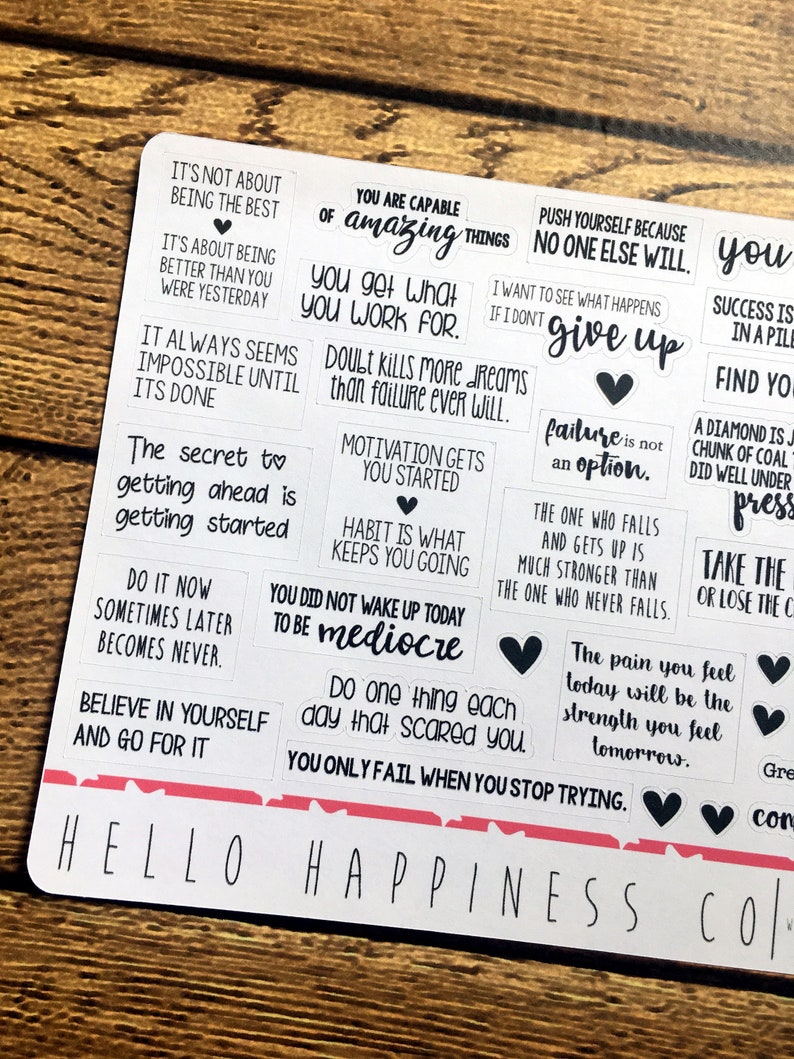 IT'S NOT ABOUT
BEING THE BEST
IT'S ABOUT BEING
BETTER THAN YOU
WERE YESTERDAY
YOU ARE CAPABLE
OF amazing THINGS
PUSH YOURSELF BECAUSE
NO ONE ELSE WILL.
you
you get what
you work for.
I WANT TO SEE WHAT HAPPENS
IF I DON'T give up
SUCCESS IS
IN A PILE
IT ALWAYS SEEMS
IMPOSSIBLE UNTIL
ITS DONE
Doubt kills more dreams
than failure ever will.
FIND YO
The secret to
getting ahead is
getting started
MOTIVATION GETS
YOU STARTED
HABIT IS WHAT
KEEPS YOU GOING
failure is not
an option.
A DIAMOND IS J
CHUNK OF COAL
DID WELL UNDER
press
THE ONE WHO FALLS
AND GETS UP IS
MUCH STRONGER THAN
THE ONE WHO NEVER FALLS.
TAKE THE
OR LOSE THE C
DO IT NOW
SOMETIMES LATER
BECOMES NEVER.
YOU DID NOT WAKE UP TODAY
TO BE mediocre
The pain you feel
today will be the
strength you feel
tomorrow.
BELIEVE IN YOURSELF
AND GO FOR IT
Do one thing each
day that scared you.
YOU ONLY FAIL WHEN YOU STOP TRYING.
Gre
com
HELLO HAPPINESS CO|
W